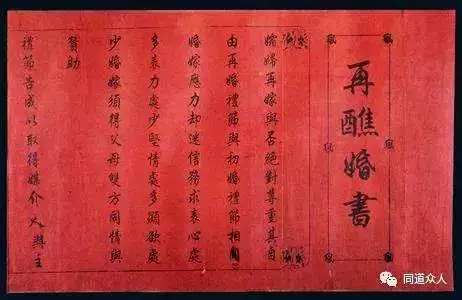 再醮婚書
孀婦再嫁與否絕對尊重其自
由再婚禮節與初婚禮節相同
婚嫁應力却迷信務求衷心處
多衷力處少堅情處多顯欲處
少婚嫁須得父母雙方同情與
贊助
禮節告成以取得媒介人與主
同道众人